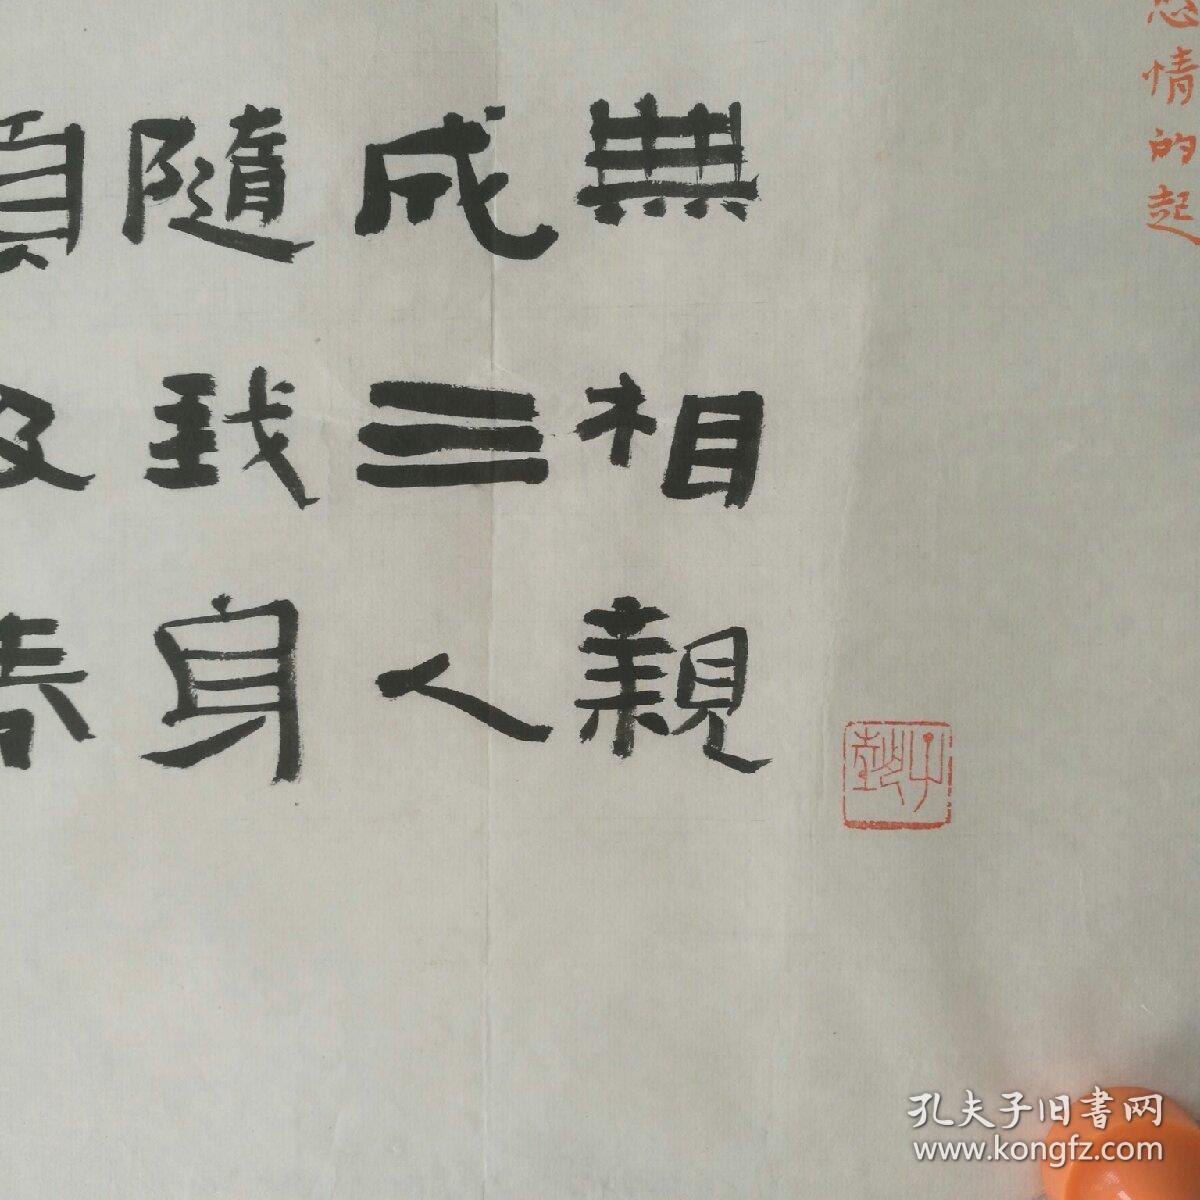 情的起
無相親
成三人
隨我身
須及春
孔夫子旧書网
www.kongfz.com